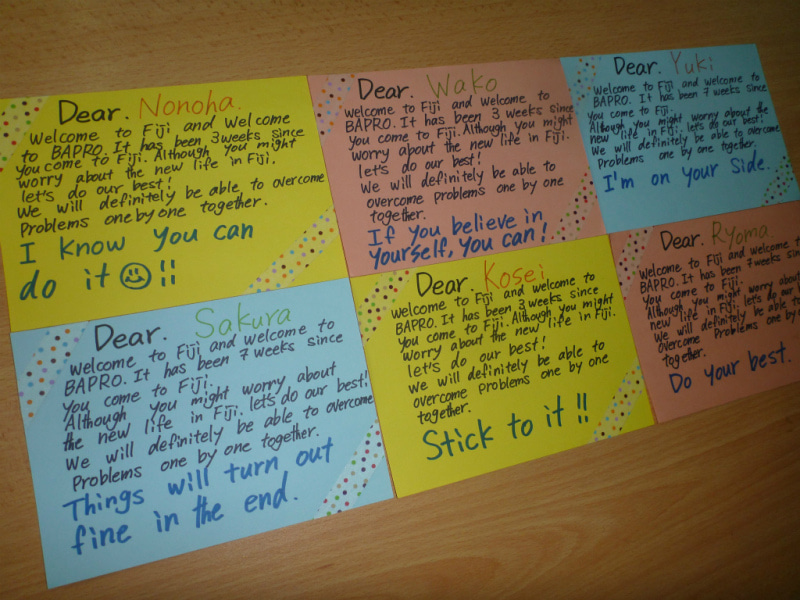 Dear. Nonoha.
Welcome to Fiji and Welcome
to BAPRO. It has been 3 weeks since
you come to Fiji. Although you might
worry about the new life in Fiji.
let's do our best!
We will definitely be able to overcome
Problems one by one together.
I know you can
do it ☺ !!
Dear. Wako
welcome to Fiji and Welcome to
BAPRO. It has been 3 weeks since
you come to Fiji. Although you might
worry about the new life in Fiji.
let's do our best!
We will definitely be able to
overcome problems one by one
together.
If you believe in
yourself, you can!
Dear. Yuki
welcome to Fiji and welcome to
BAPRO. It has been 7 weeks since
you come to Fiji.
Although you might worry about the
new life in Fiji. let's do our best!
We will definitely be able to overcome
Problems one by one together.
I'm on your side.
Dear. Sakura
welcome to Fiji and welcome to
BAPRO. It has been 7 weeks since
you come to Fiji.
Although you might worry about
the new life in Fiji. let's do our best!
We will definitely be able to overcome
Problems one by one together.
Things will turn out
fine in the end.
Dear. Kosei
welcome to Fiji and welcome to
BAPRO. It has been 3 weeks since
you come to Fiji. Although you might
worry about the new life in Fiji.
let's do our best!
we will definitely be able to
overcome problems one by one
together.
Stick to it !!
Dear. Ryoma.
Welcome to Fiji and welcome to
BAPRO. It has been 7 weeks since
you come to Fiji.
Although you might worry about
new life in Fiji. let's do our
We will definitely be able to
overcome Problems one by
together.
Do your best.